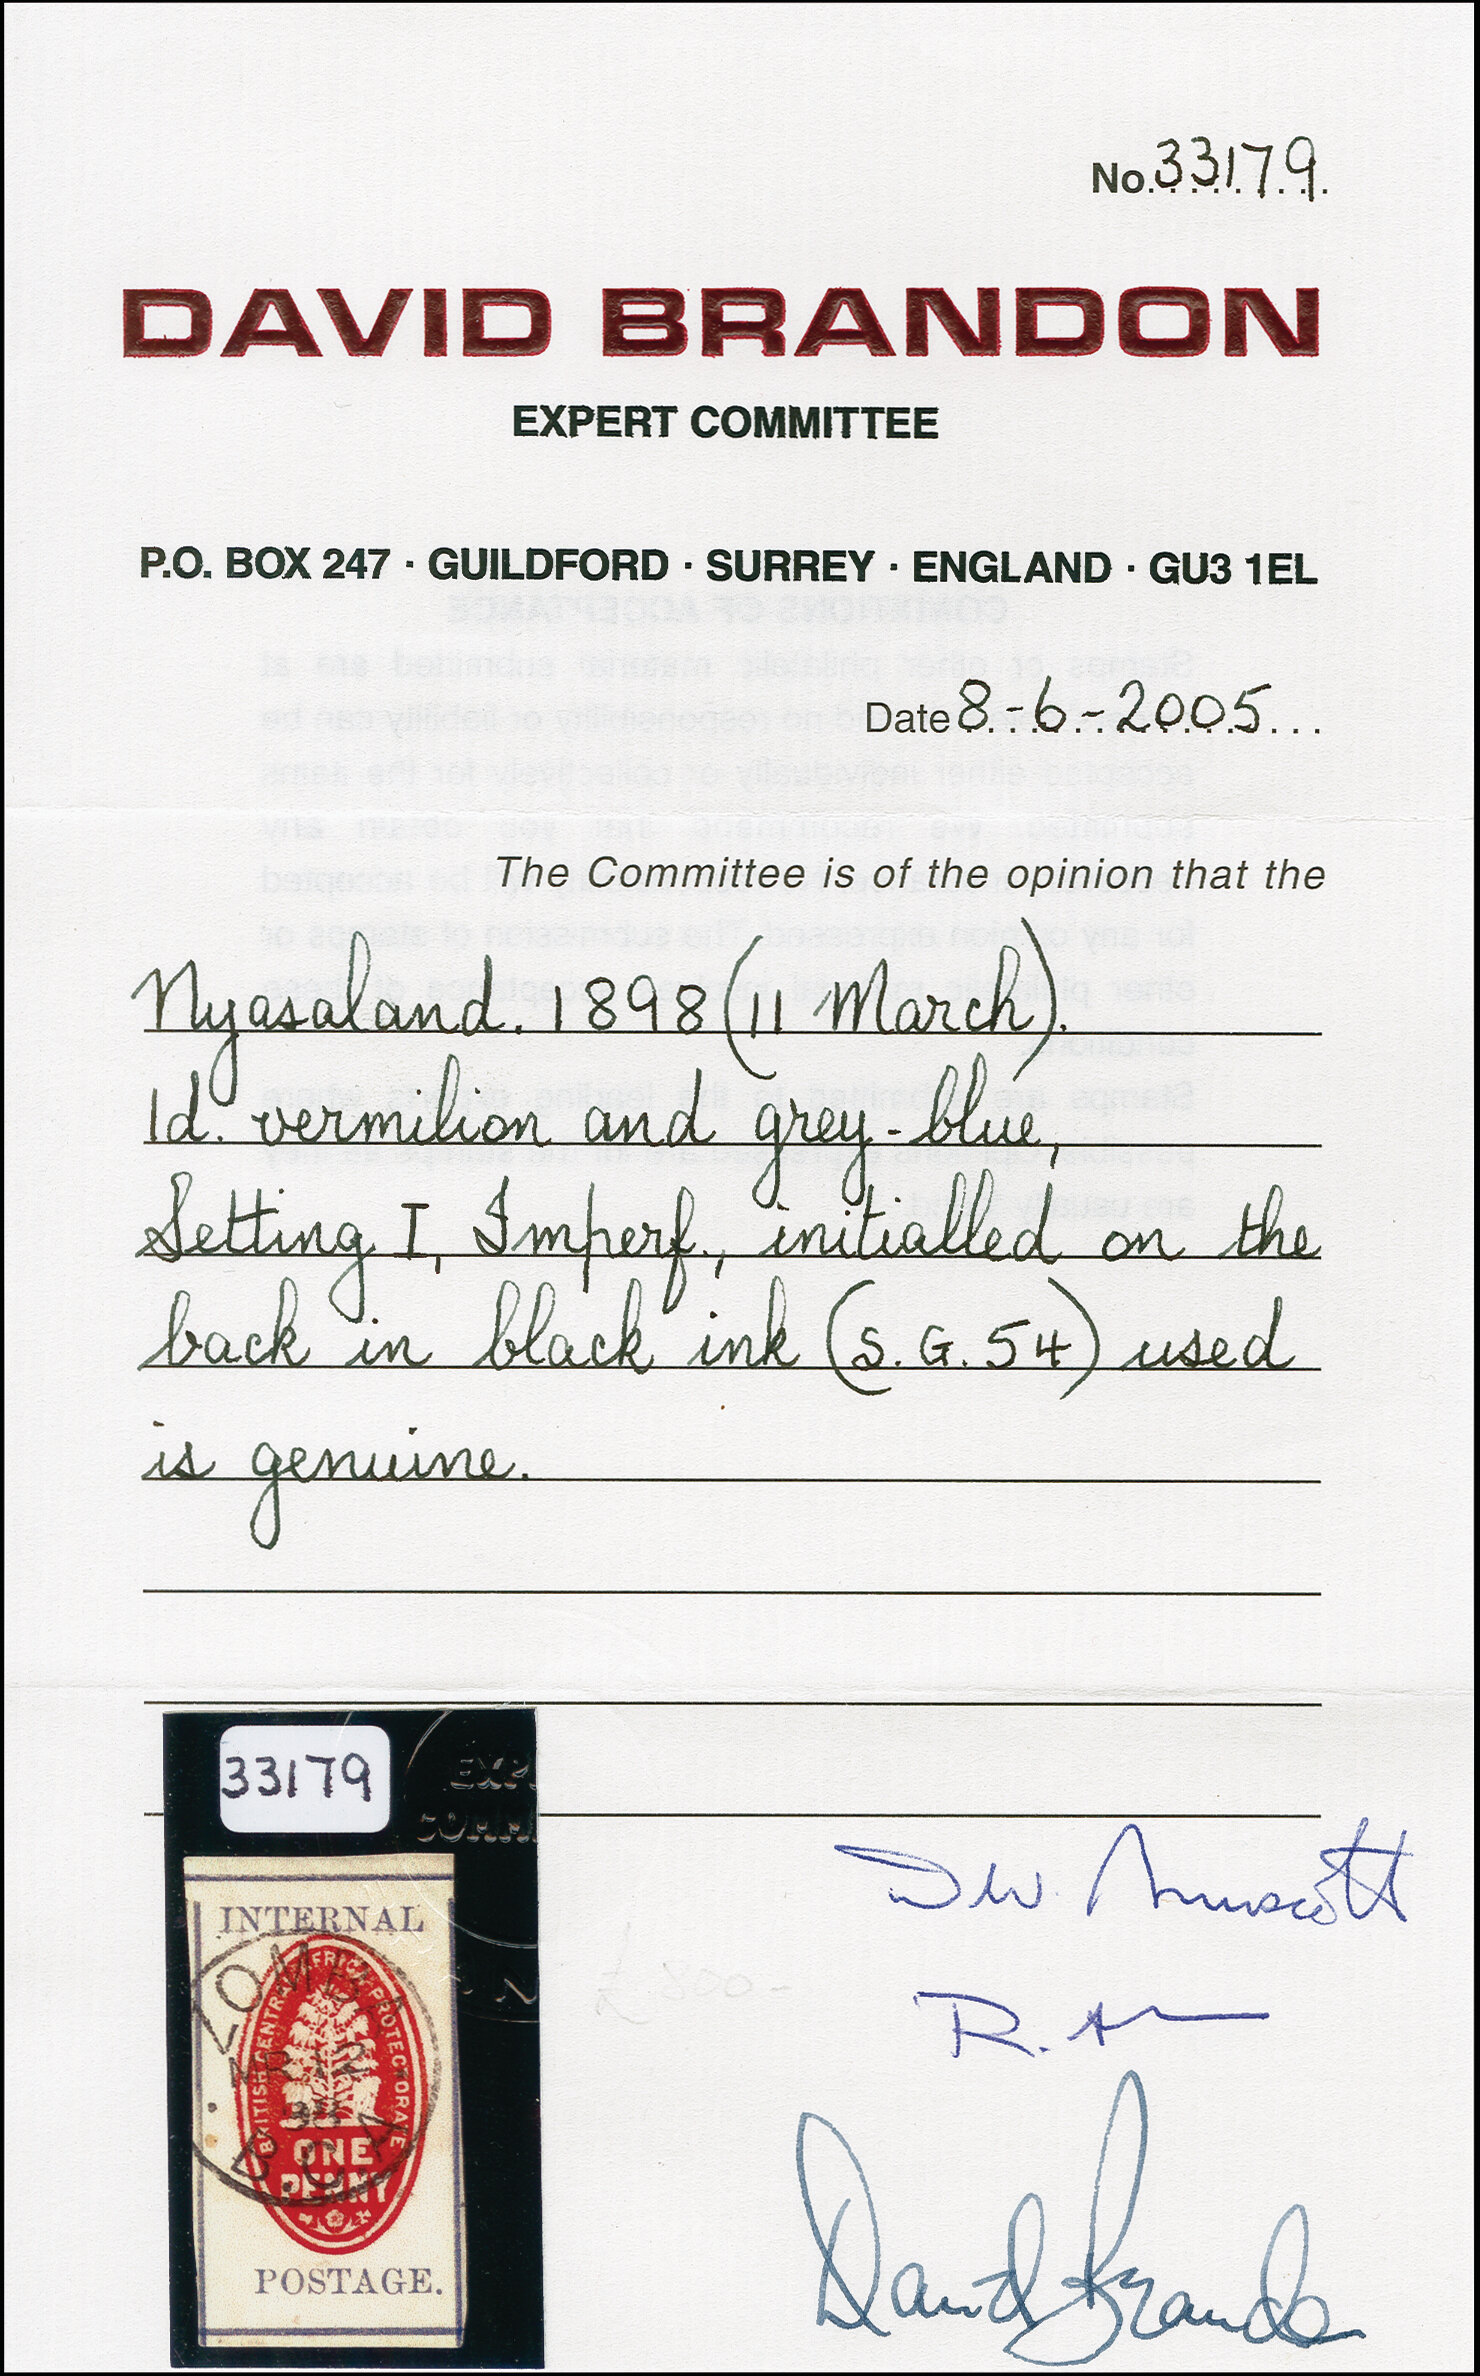 No. 33179
DAVID BRANDON
EXPERT COMMITTEE
P.O. BOX 247 · GUILDFORD · SURREY · ENGLAND · GU3 1EL
Date 8-6-2005
The Committee is of the opinion that the
Nyasaland. 1898 (11 March).
1d. vermilion and grey-blue,
Setting I, Imperf., initialled on the
back in black ink (S.G. 54) used
is genuine.
33179
EXP
COMM
INTERNAL
BRITISH CENTRAL AFRICA PROTECTORATE
ZOMBA
MR 12
98
B.C.A
ONE
PENNY
POSTAGE.
David Brandon